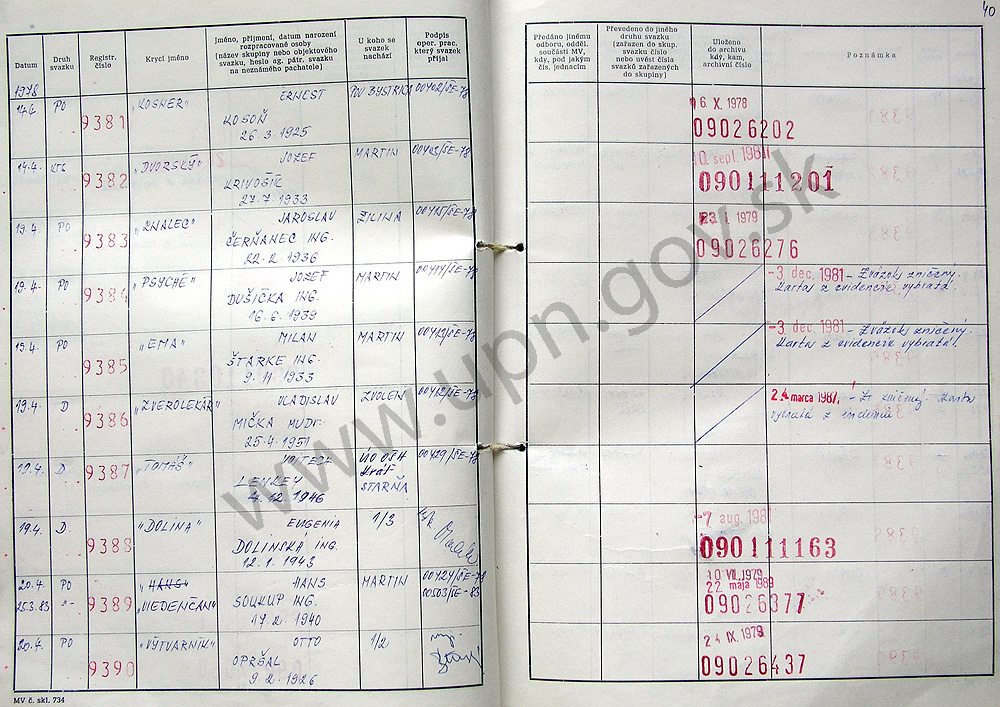 40
Datum
Druh svazku
Registr. číslo
Krycí jméno
Jméno, příjmení, datum narození
rozpracované osoby
(název skupiny nebo objektového
svazku, heslo ag. pátr. svazku
na neznámého pachatele)
U koho se
svazek
nachází
Podpis
oper. prac.
který svazek
přijal
Předáno jinému
odboru, odděl.
součásti MV,
kdy, pod jakým
čís. jednacím
Převedeno do jiného
druhu svazku
(zařazen do skup.
svazku číslo
nebo uvést čísla
svazků zařazených
do skupiny)
Uloženo
do archivu
kdy, kam,
archivní číslo
Poznámka
1978
14.4. PO 9381 "KOSNER" ERNEST POV BYSTRICA 00402/ŠE-78 6. X. 1978
KOSOŇ 09026202
26.3.1925
14.4. 9382 "DVORSKÝ" JOZEF MARTIN 00403/ŠE-78 10. sept. 1981
KRIVOŠÍK 090111201
27.7.1933
19.4 PO 9383 "ZNALEC" JAROSLAV ŽILINA 00415/ŠE-78 23. I 1979
ČERŇANEC ING. 09026276
22.2.1936
19.4. PO 9384 "PSYCHÉ" JOZEF MARTIN 00414/ŠE-78 -3. dec. 1981 - Zväzok zničený.
DUŠIČKA ING. Karta z evidencie vybratá.
16.6.1939
19.4. PO 9385 "EMA" MILAN MARTIN 00413/ŠE-78 -3. dec. 1981 - Zväzok zničený.
ŠTARKE ING. Karta z evidencie vybratá.
9.11.1933
19.4. D 9386 "ZVEROLEKÁR" VLADISLAV ZVOLEN 00412/ŠE-78 24. marca 1987. - Zv zničený. Karta
MIČKA MUDr. vybratá z evidencie
25.4.1951
19.4. D 9387 "TOMÁŠ" VOJTECH 00429/ŠE-78
LEHKEY
4.12.1946 STARŇA
19.4. D 9388 "DOLINA" EUGENIA 1/3 -7 aug. 1981
DOLINSKÁ ING. 090111163
12.1.1943
20.4. PO 9389 "HANS" HANS MARTIN 00424/ŠE-78 10 VII. 1979
25.3.83 -"- "VIEDENČAN" SOUKUP ING. 00503/ŠE-83 22. mája 1989
17.2.1940 09026377
20.4. PO 9390 "VÝTVARNÍK" OTTO 1/2 24 IX. 1979
OPRŠAL 09026437
9.2.1926
MV č. skl. 734
www.upn.gov.sk